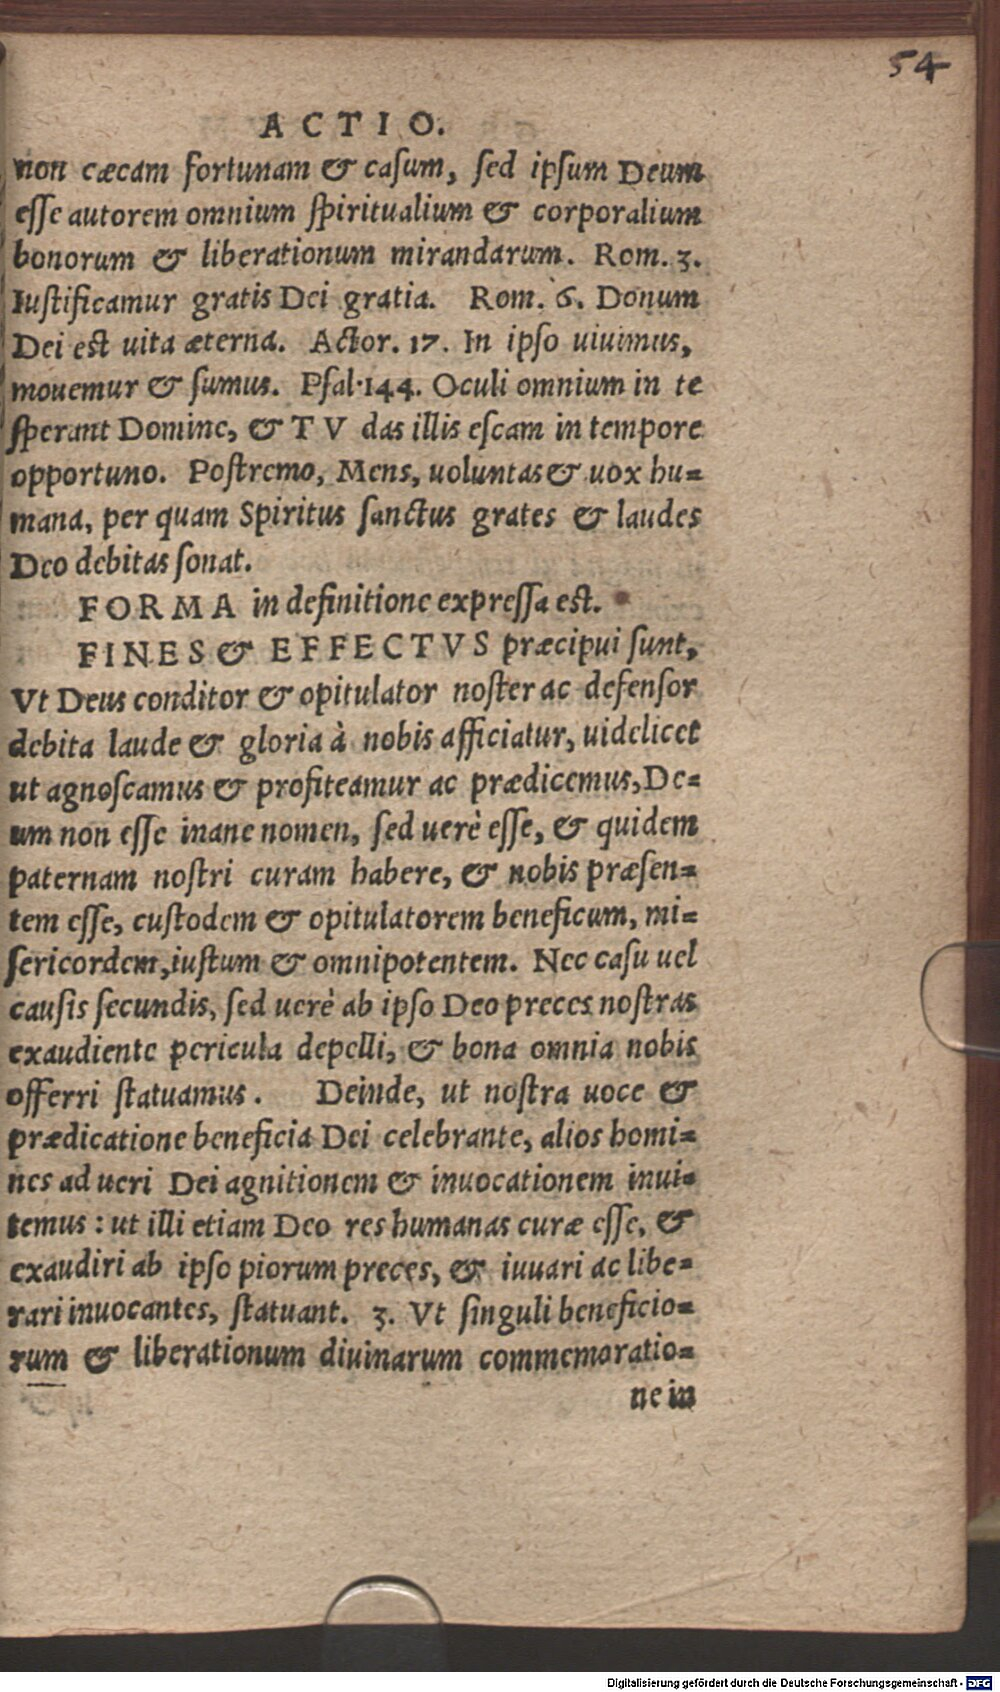 54
ACTIO.
non cæcam fortunam & casum, sed ipsum Deum
esse autorem omnium spiritualium & corporalium
bonorum & liberationum mirandarum. Rom. 3.
Iustificamur gratis Dei gratia. Rom. 6. Donum
Dei est uita æterna. Actor. 17. In ipso uiuimus,
mouemur & sumus. Psal. 144. Oculi omnium in te
sperant Domine, & TV das illis escam in tempore
opportuno. Postremo, Mens, uoluntas & uox hu=
mana, per quam Spiritus sanctus grates & laudes
Deo debitas sonat.
FORMA in definitione expressa est.
FINES & EFFECTVS præcipui sunt,
Vt Deus conditor & opitulator noster ac defensor
debita laude & gloria à nobis afficiatur, uidelicet
ut agnoscamus & profiteamur ac prædicemus, De=
um non esse inane nomen, sed uerè esse, & quidem
paternam nostri curam habere, & nobis præsen=
tem esse, custodem & opitulatorem beneficum, mi=
sericordem, iustum & omnipotentem. Nec casu uel
causis secundis, sed uerè ab ipso Deo preces nostras
exaudiente pericula depelli, & bona omnia nobis
offerri statuamus. Deinde, ut nostra uoce &
prædicatione beneficia Dei celebrante, alios homi=
nes ad ueri Dei agnitionem & inuocationem inui=
temus: ut illi etiam Deo res humanas curæ esse, &
exaudiri ab ipso piorum preces, & iuuari ac libe=
rari inuocantes, statuant. 3. Vt singuli beneficio=
rum & liberationum diuinarum commemoratio=
ne in
Digitalisierung gefördert durch die Deutsche Forschungsgemeinschaft - DFG